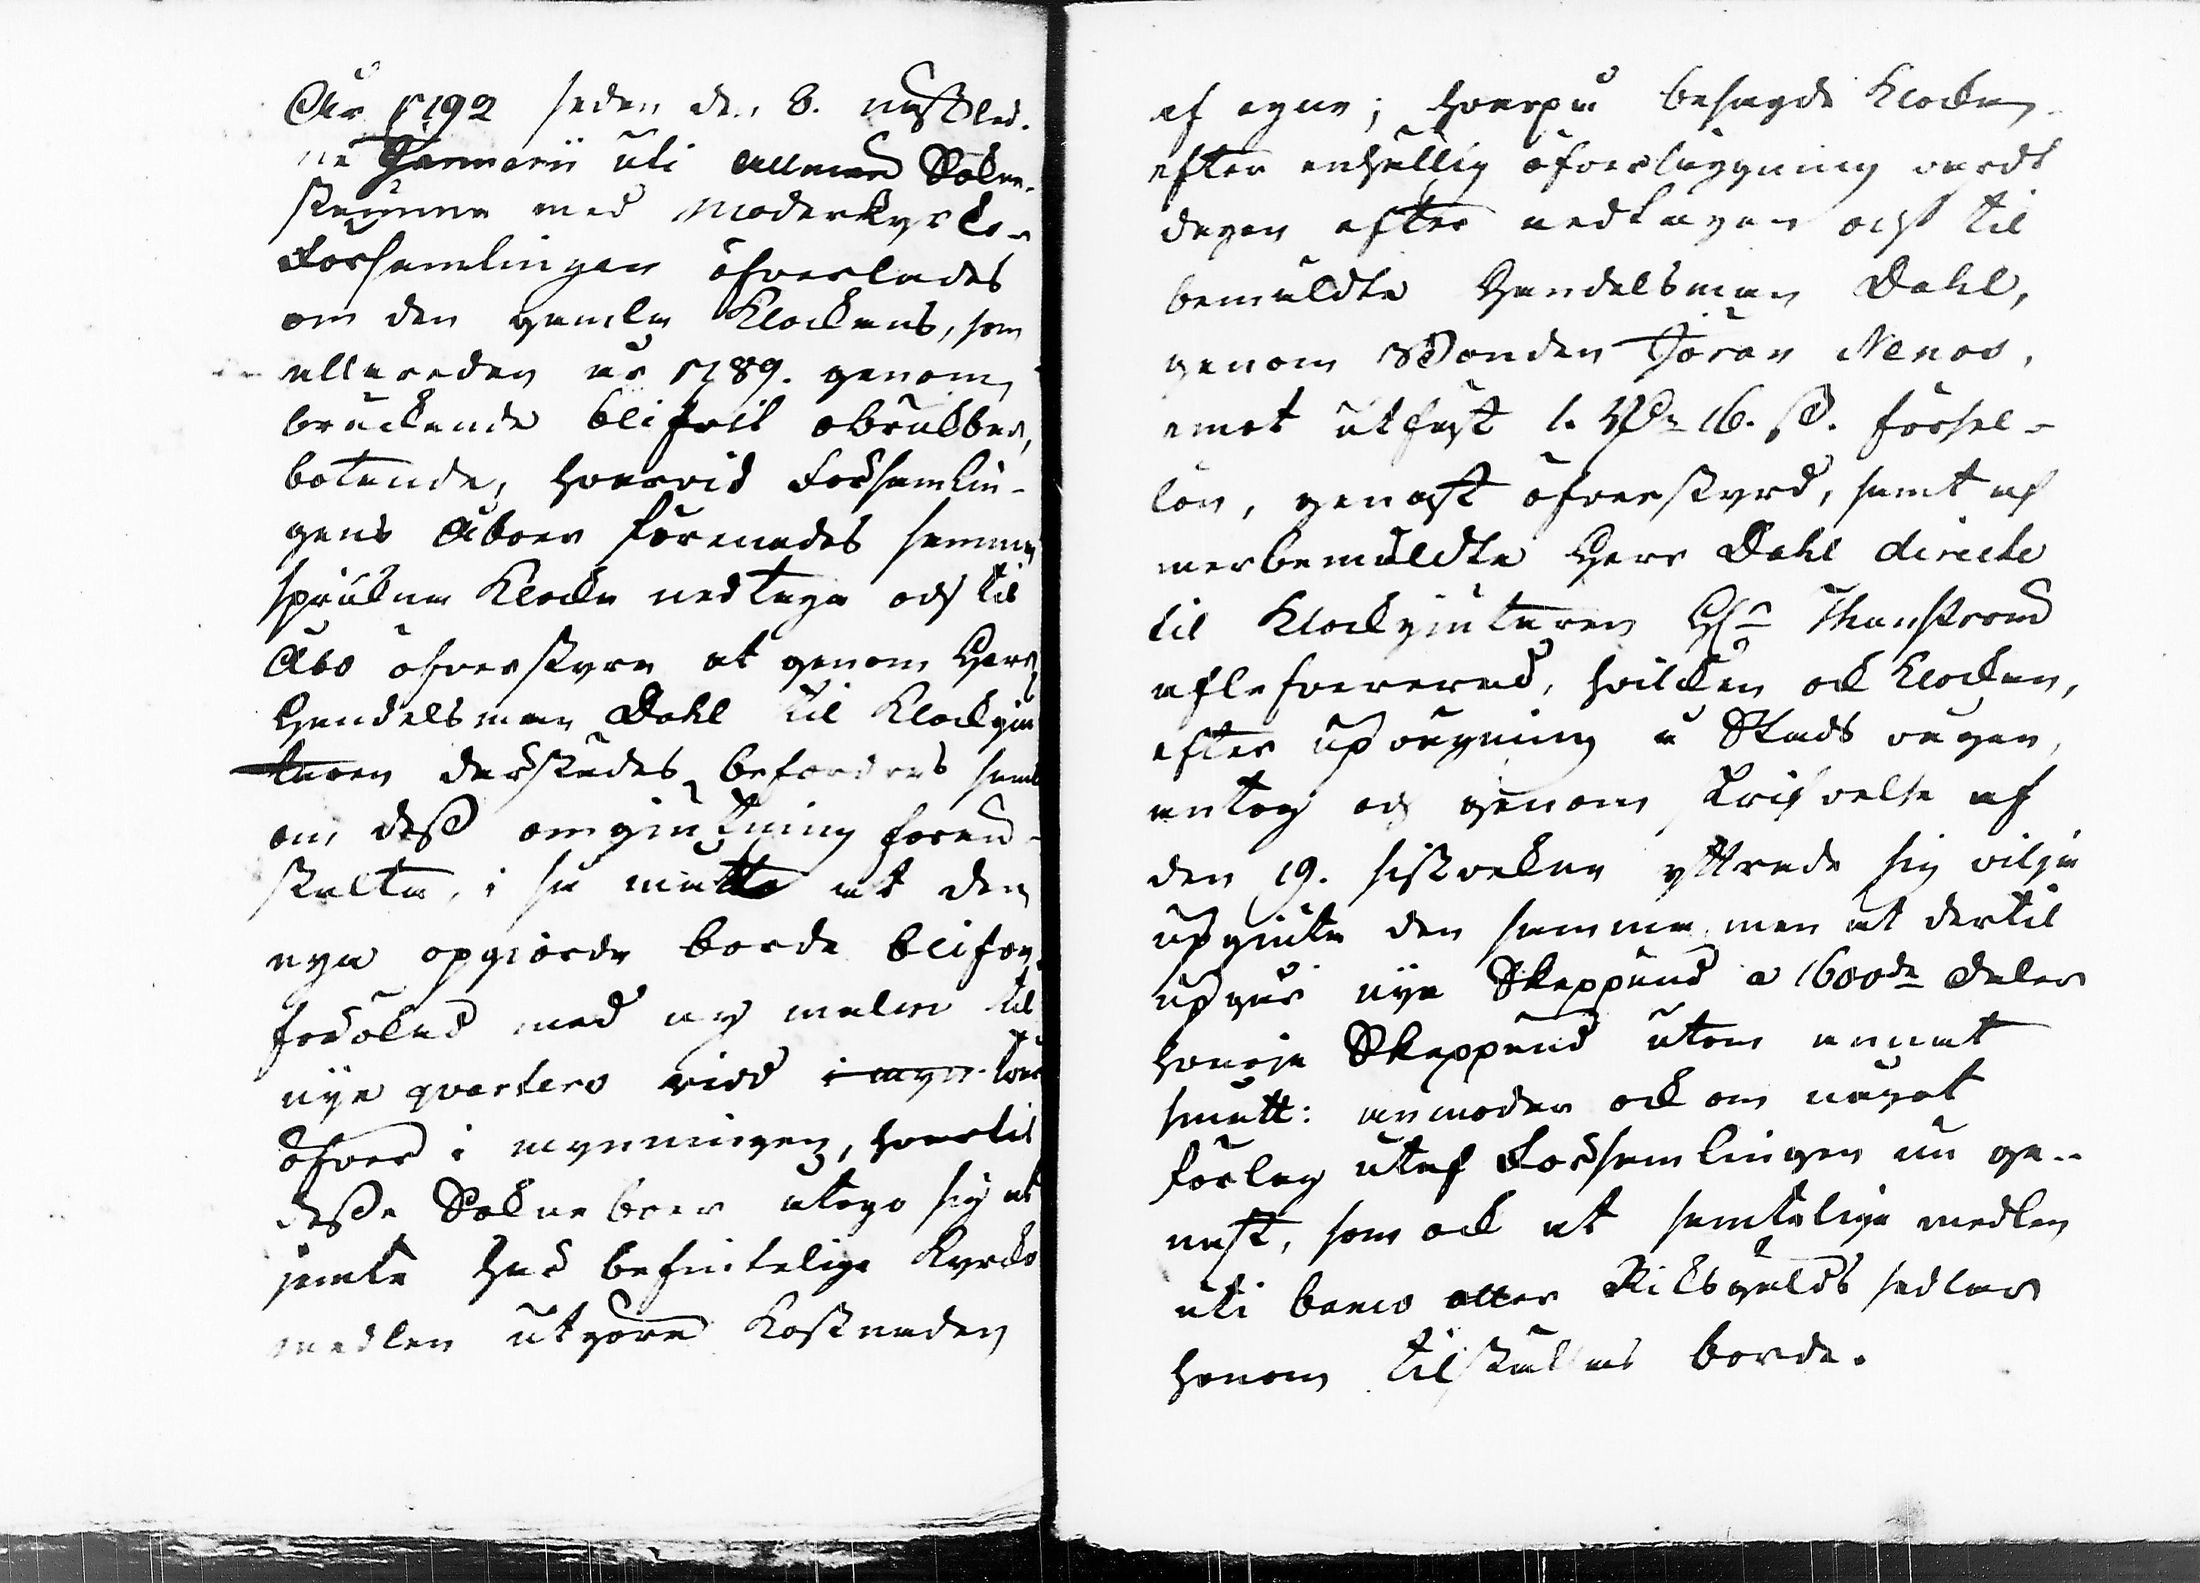 År 1792 sedan d. 8. nästled.
ne Januarii uti allmän Sokne-
stämma med Moderkyrko-
Församlingen öfverlades
om den gamla Klockans, som
allaredan år 1789. genom
bräckande blifvit obrukbar,
botande, hvarvid Församlin-
gens Åboer förenades samma
spräckna Klocka nedtaga och til
Åbo öfverstyra at genom Herr
Handelsman Dahl til Klockgiu
taren därstädes befordras samt
om dess omgiutning foran-
stalta, i så måtto at den
nya opgiorde borde blifva
förökad med ny malm til
nye qvarters vidd i myn
öfver i mynningen, hvartil
desse Sokneboer åtogo sig at
jemte har befintelige Kyrko
medlen utgöra Kostnaden
af egne; hvarpå besagde Klocka
efter enhällig öfverläggning vardt
dagen efter nedtagen och til
bemäldte Handelsman Dahl,
genom Bonden Jöran Nenos,
emot utfäst 1. Rd 16. ß. forsel-
lön, genast öfverstyrd, samt af
merbemäldte Herr Dahl directe
til Klockgiutaren Hr Thunstroem
aflefvererad, hvilcken ock Klockan,
efter upvägning å Stads vågen,
antog och genom skrifvelse af
den 19. sistvekne yttrade sig vilja
upgiuta den samma, men at dertil
upgår nye Skeppund a 1600de daler
hvarje Skeppund utom annat
smått: anmoder ock om något
förslag utaf Församlingen nu ge-
nast, som ock at samtelige medlen
uti banco eller Riksgälds sedlar
honom tilställas borde.